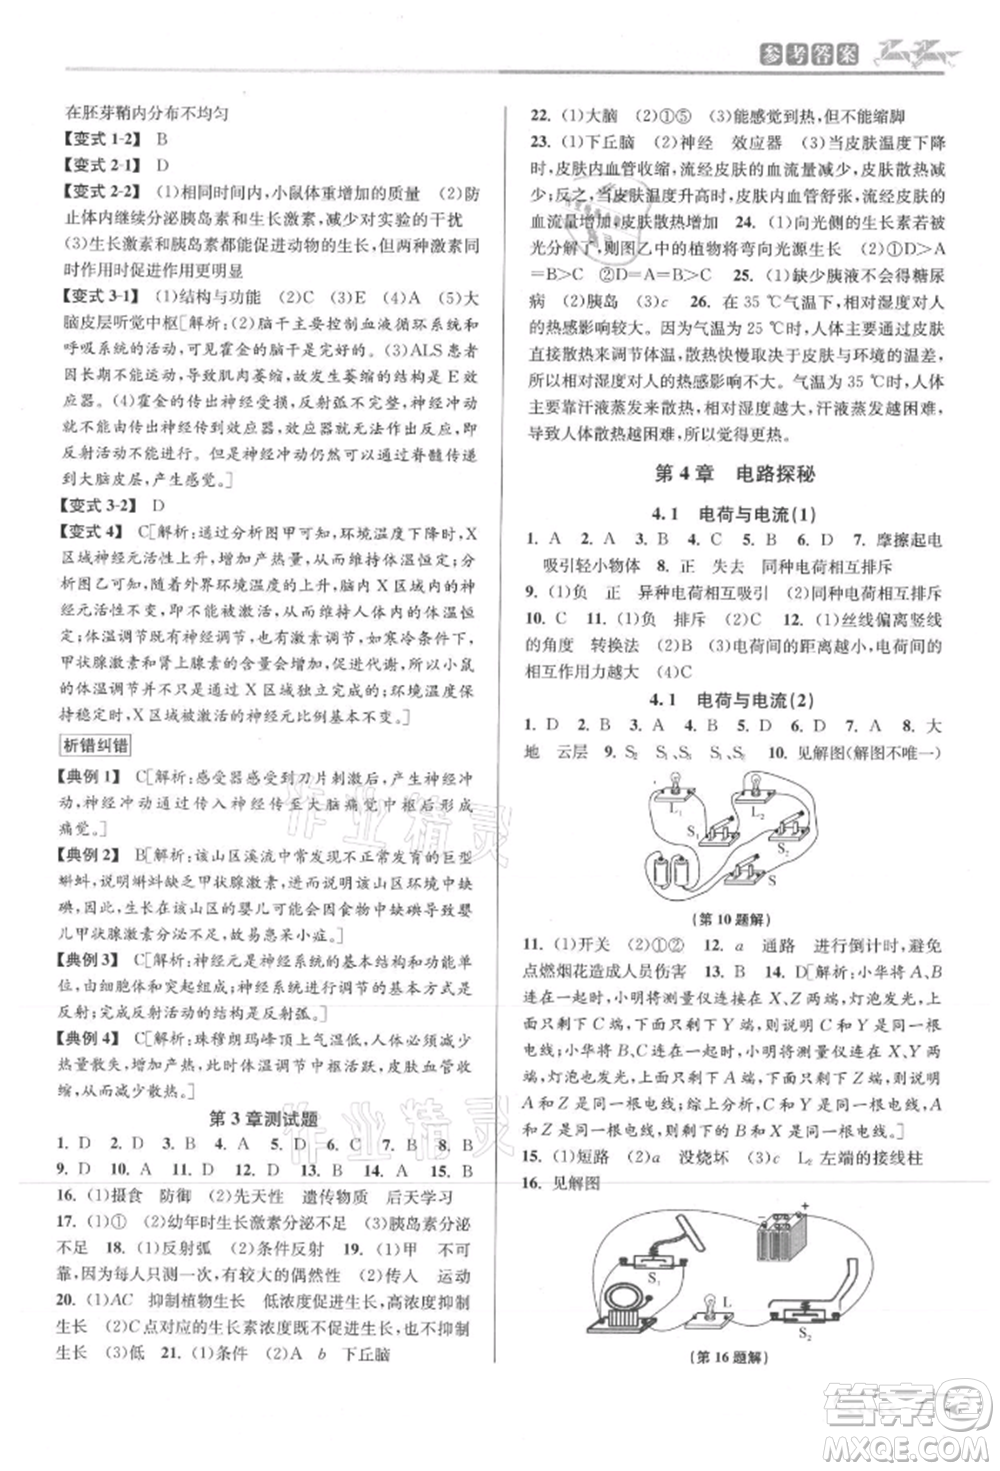 参考答案
在胚芽鞘内分布不均匀
【变式 1-2】 B
【变式 2-1】 D
【变式 2-2】 (1)相同时间内,小鼠体重增加的质量 (2)防
止体内继续分泌胰岛素和生长激素,减少对实验的干扰
(3)生长激素和胰岛素都能促进动物的生长,两种激素同
时作用时促进作用更明显
【变式 3-1】 (1)结构与功能 (2)C (3)E (4)A (5)大
脑皮层听觉中枢[解析:(2)脑干主要控制血液循环系统和
呼吸系统的活动,霍金的脑干是完好的。(3)ALS 患者
因长期不能运动,导致肌肉萎缩,故发生萎缩的结构是 E 效
应器。(4)霍金的传出神经受损,反射弧不完整,神经冲
动就无法通过传出神经传到效应器,也就无法作出相应
反射活动。(5)患者能产生听觉,无需经过脊髓,听觉中
枢位于大脑皮层,产生感觉。]
【变式 3-2】 D
【变式 4】 C[解析:通过分析图甲可知,环境温度上升,X
区域神经元活性上升,产热量上升,从而维持体温恒定;分
析图乙可知,随着外界环境温度的上升,Y 区域被激活的神
经元活性不变,产热量下降,从而维持人体体温恒定;
体温调节既有神经调节,也有激素调节,如寒冷条件下,
甲状腺激素和肾上腺素的含量会增加,促进代谢,所以小鼠
的体温调节并不是只通过 X 区域影响产热,使体温保
持稳定,也有激素调节;据图甲可知,随着环境温度下降,
X 区域被激活的神经元基本不变。]
析错纠错
【典例 1】 C[解析:感受器感受到刀片刺激后,产生神经冲
动,神经冲动经过传入神经传至大脑痛觉中枢,产后形成
痛觉。]
【典例 2】 B[解析:该山区溪流中常常发育的巨型
蝌蚪,说明蝌蚪缺乏甲状腺激素,说明该山区环境中缺
碘,生长在该山区的婴儿可能因食物中缺碘,导致婴
儿甲状腺激素分泌不足,从而患呆小症。]
【典例 3】 C[解析:神经元是神经系统的基本结构和功能
单位;神经系统的中枢部分包括脑和脊髓;反射活动的
反射;完成反射活动的结构基础是反射弧。]
【典例 4】 C[解析:珠穆朗玛峰顶上气温低,人体为减少
热量散失,增加产热,体温调节中枢活跃,皮肤血管收
缩,从而减少散热。]
第 3 章测试题
1. D 2. D 3. B 4. A 5. D 6. D 7. B 8. B
9. D 10. D 11. D 12. D 13. A 14. A 15. B
16. (1)摄食 防御 (2)先天性 遗传物质 后天学习
17. (1)① (2)幼年时生长激素分泌不足 (3)胰岛素分泌
不足 18. (1)反射弧 (2)条件反射 19. (1)甲 不可
靠,只测一次,有较大的偶然性 (2)传人 运动
20. (1)AC 抑制植物生长 低浓度促进生长,高浓度抑制
生长 (2)C 点对应的生长素浓度,既不促进也不抑制植物
生长 (3)低 21. (1)条件 (2)A b 下丘脑
22. (1)大脑 (2)①⑤ (3)能感觉到热,但不能缩脚
23. (1)下丘脑 (2)神经 效应器 (3)当皮肤温度下降
时,皮肤内血管收缩,流经皮肤的血流量减少,皮肤散热减
少;反之,当皮肤温度升高时,皮肤内血管舒张,流经皮肤的
血流量增加,皮肤散热增加 24. (1)向光侧的生长素有没有被
光分解了,则图乙中的植物将弯向光源生长 (2)①D>A
=B>C ②D=A=B>C 25. (1)缺少胰液不会得糖尿
病 (2)胰岛 (3)c 26. 在 35 ℃气温下,相对湿度对人
的热感影响较大。因为气温为 25 ℃时,人体主要通过皮肤
直接散热来调节体温,散热快慢主要取决于皮肤与环境的温差,
所以相对湿度对人的热感影响不大。气温为 35 ℃时,人体
主要靠汗液蒸发来散热,相对湿度越大,汗液蒸发越困难,
导致人体散热越困难,所以觉得更热。
第 4 章 电路探秘
4.1 电荷与电流(1)
1. A 2. A 3. B 4. C 5. B 6. D 7. 摩擦起电
吸引轻小物体 8. 正 失去 同种电荷相互排斥
9. (1)负 正 异种电荷相互吸引 (2)同种电荷相互排斥
10. C 11. (1)负 排斥 (2)B 12. (1)丝线偏离竖线
的角度 转换法 (2)B (3)电荷间的距离越小,电荷间的
相互作用力越大 (4)C
4.1 电荷与电流(2)
1. D 2. B 3. A 4. B 5. D 6. A 7. C 8. 大
地 云层 9. S₂ S₁ S₁ S₂ 10. 见解图(解图不唯一)
L₁
L₂
S₁
S
(第 10 题解)
11. (1)开关 (2)①② 12. a 通路 进行倒计时,避免
点燃烟花造成人员伤害 13. B 14. D[解析:小华将 A、C
连在一起时,小明将测量仪连在 X、Z 两端,灯泡发光,上
面只剩下 C 端,下面只剩下 Y 端,说明 C 和 Y 是同一根
电线;小华将 B、C 连在一起时,小明将测量仪连在 X、Z 两
端,灯泡也发光,上面剩下 A 端,下面剩下 Z 端,说明
A 和 Z 是同一根电线;综上分析,C 和 Y 是同一根电线,
A 和 Z 是同一根电线,B 和 X 是同一根电线。]
15. (1)短路 (2)a 没烧坏 (3)c L₂ 左端的接线柱
16. 见解图
S₁
L
S₂
− +
(第 16 题解)
作业精灵
作业精灵
答案圈
MXQE.COM